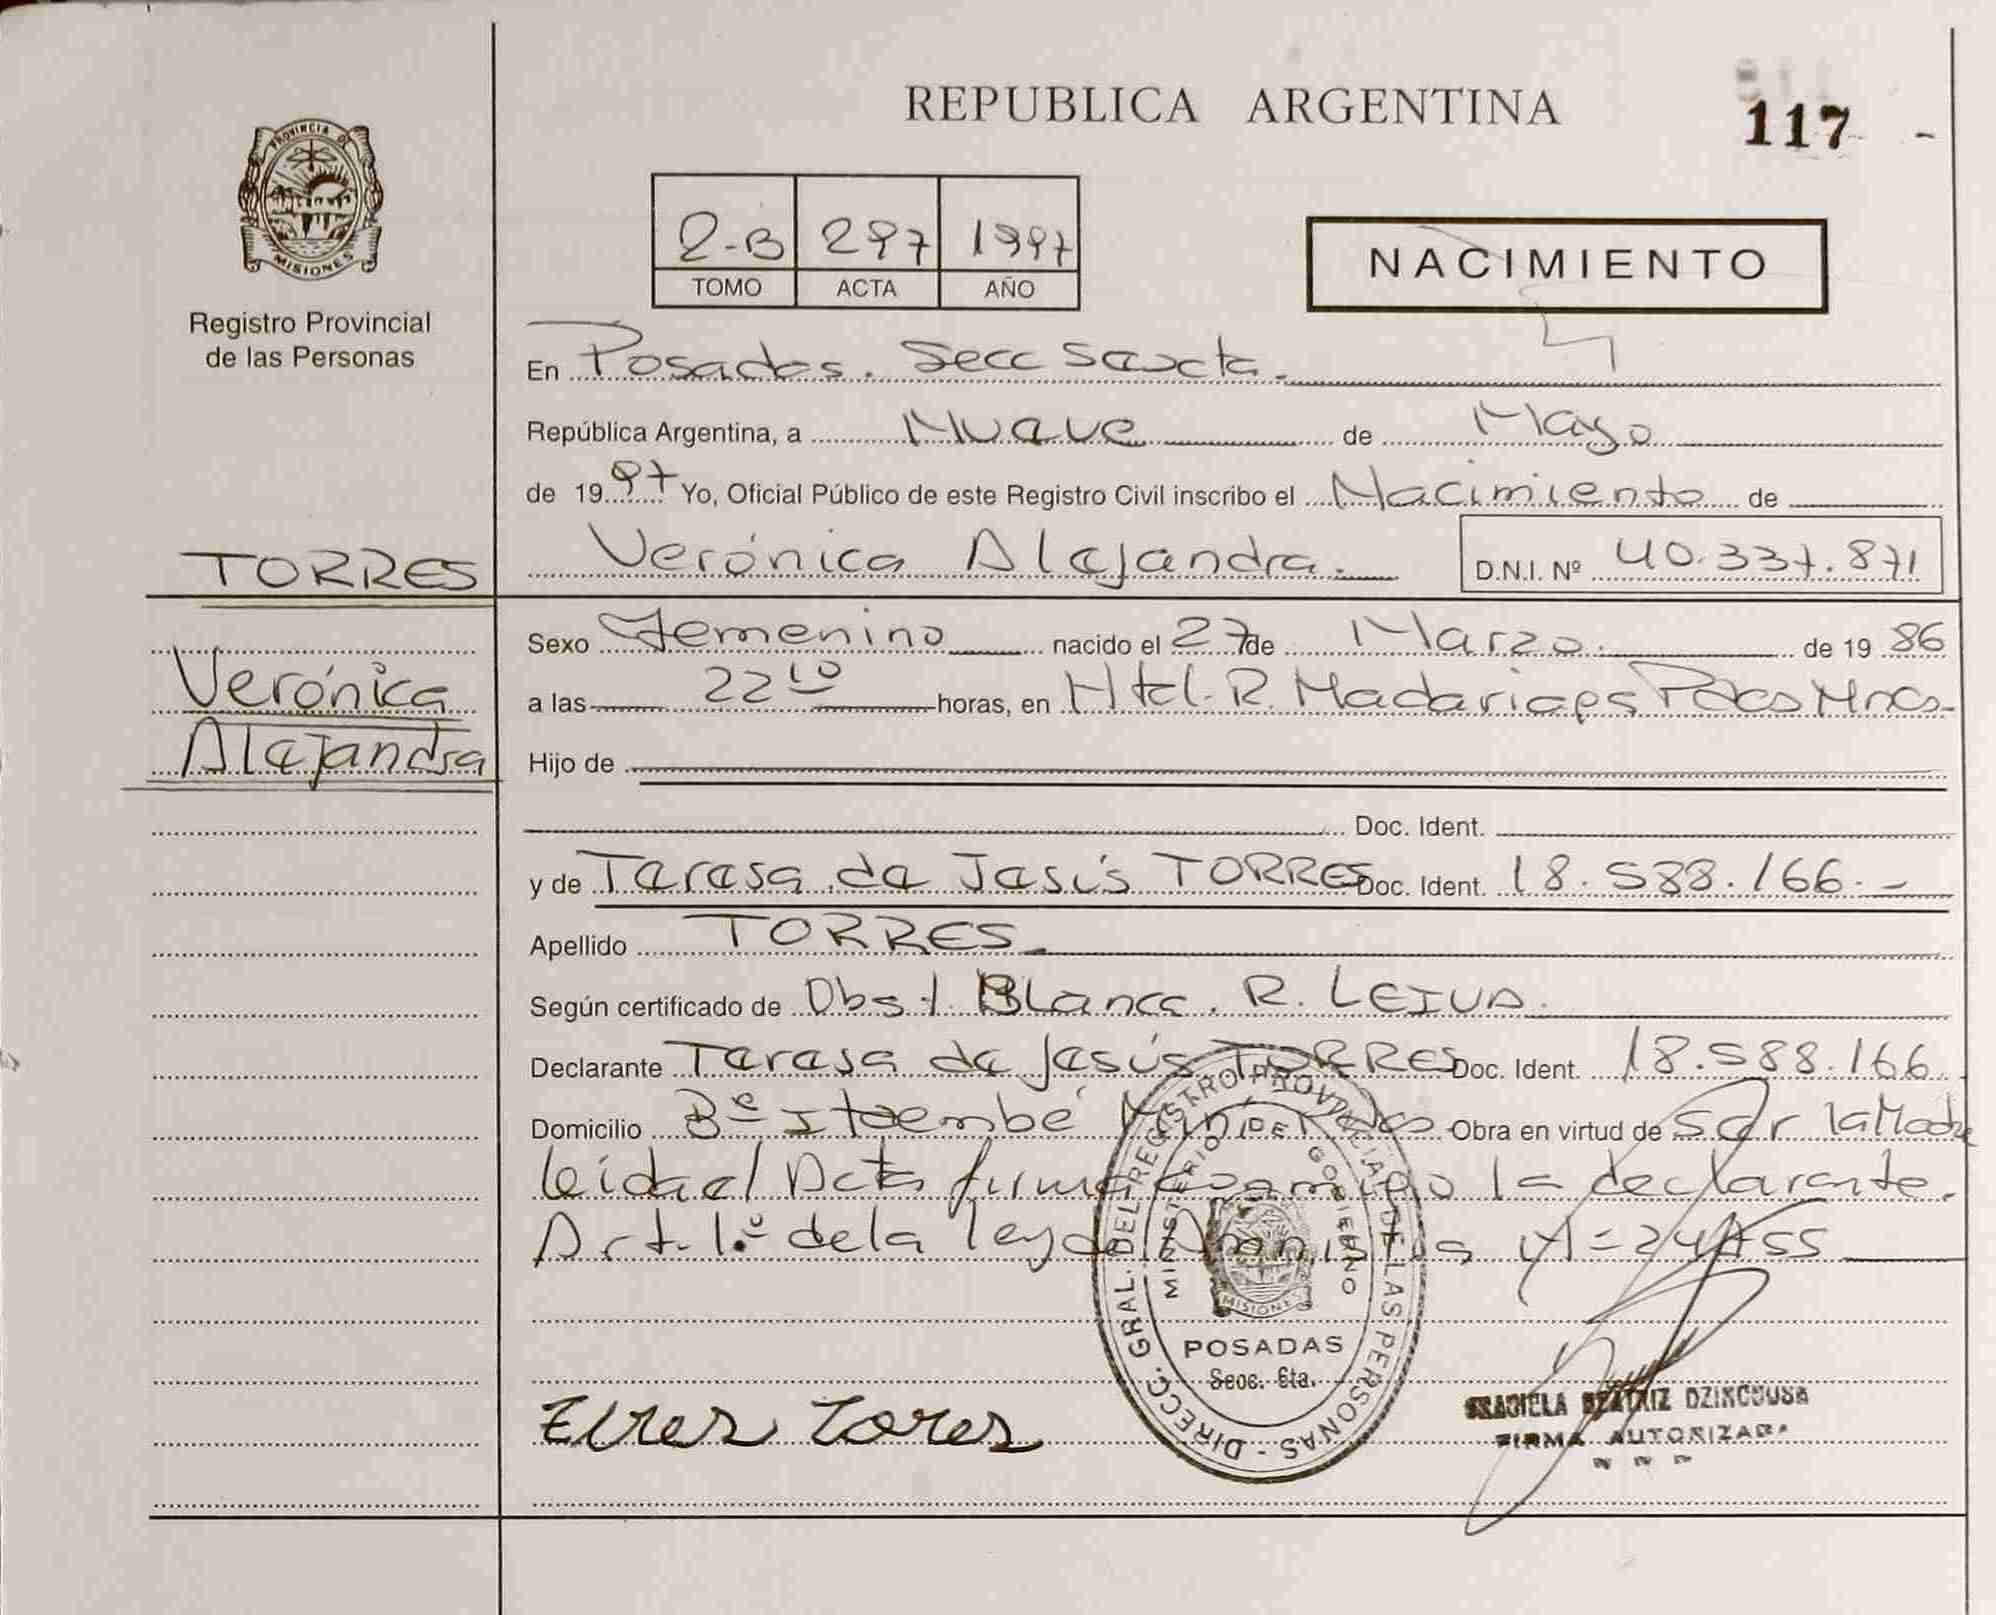 REPUBLICA ARGENTINA
117 -
PROVINCIA DE
MISIONES
Registro Provincial
de las Personas
2-B 297 1997
TOMO ACTA AÑO
NACIMIENTO
En Posadas. Secc Sexta.
República Argentina, a Nueve de Mayo
de 1997 Yo, Oficial Público de este Registro Civil inscribo el Nacimiento de
TORRES
Verónica Alejandra. D.N.I. Nº 40.337.871
Verónica
Alejandra
Sexo Femenino nacido el 27 de Marzo. de 19 86
a las 22 10 horas, en Htal. R. Madariaga Pdas Mnes.
Hijo de
Doc. Ident.
y de Teresa de Jesús TORRES Doc. Ident. 18.588.166.-
Apellido TORRES.
Según certificado de Obst. Blanca. R. LEIVA.
Declarante Teresa de Jesús TORRES Doc. Ident. 18.588.166.
Domicilio Bº Itaembé Miní Pdas Obra en virtud de Ser la Madre
leida el Acta firma conmigo la declarante.
Art. 1º de la ley de Amnistia Nº 24755
DIRECC. GRAL. DEL REGISTRO PROVINCIAL DE LAS PERSONAS -
MINISTERIO DE GOBIERNO
MISIONES
POSADAS
Secc. 6ta.
Torres
GRACIELA BEATRIZ DZINCOUSA
FIRMA AUTORIZADA